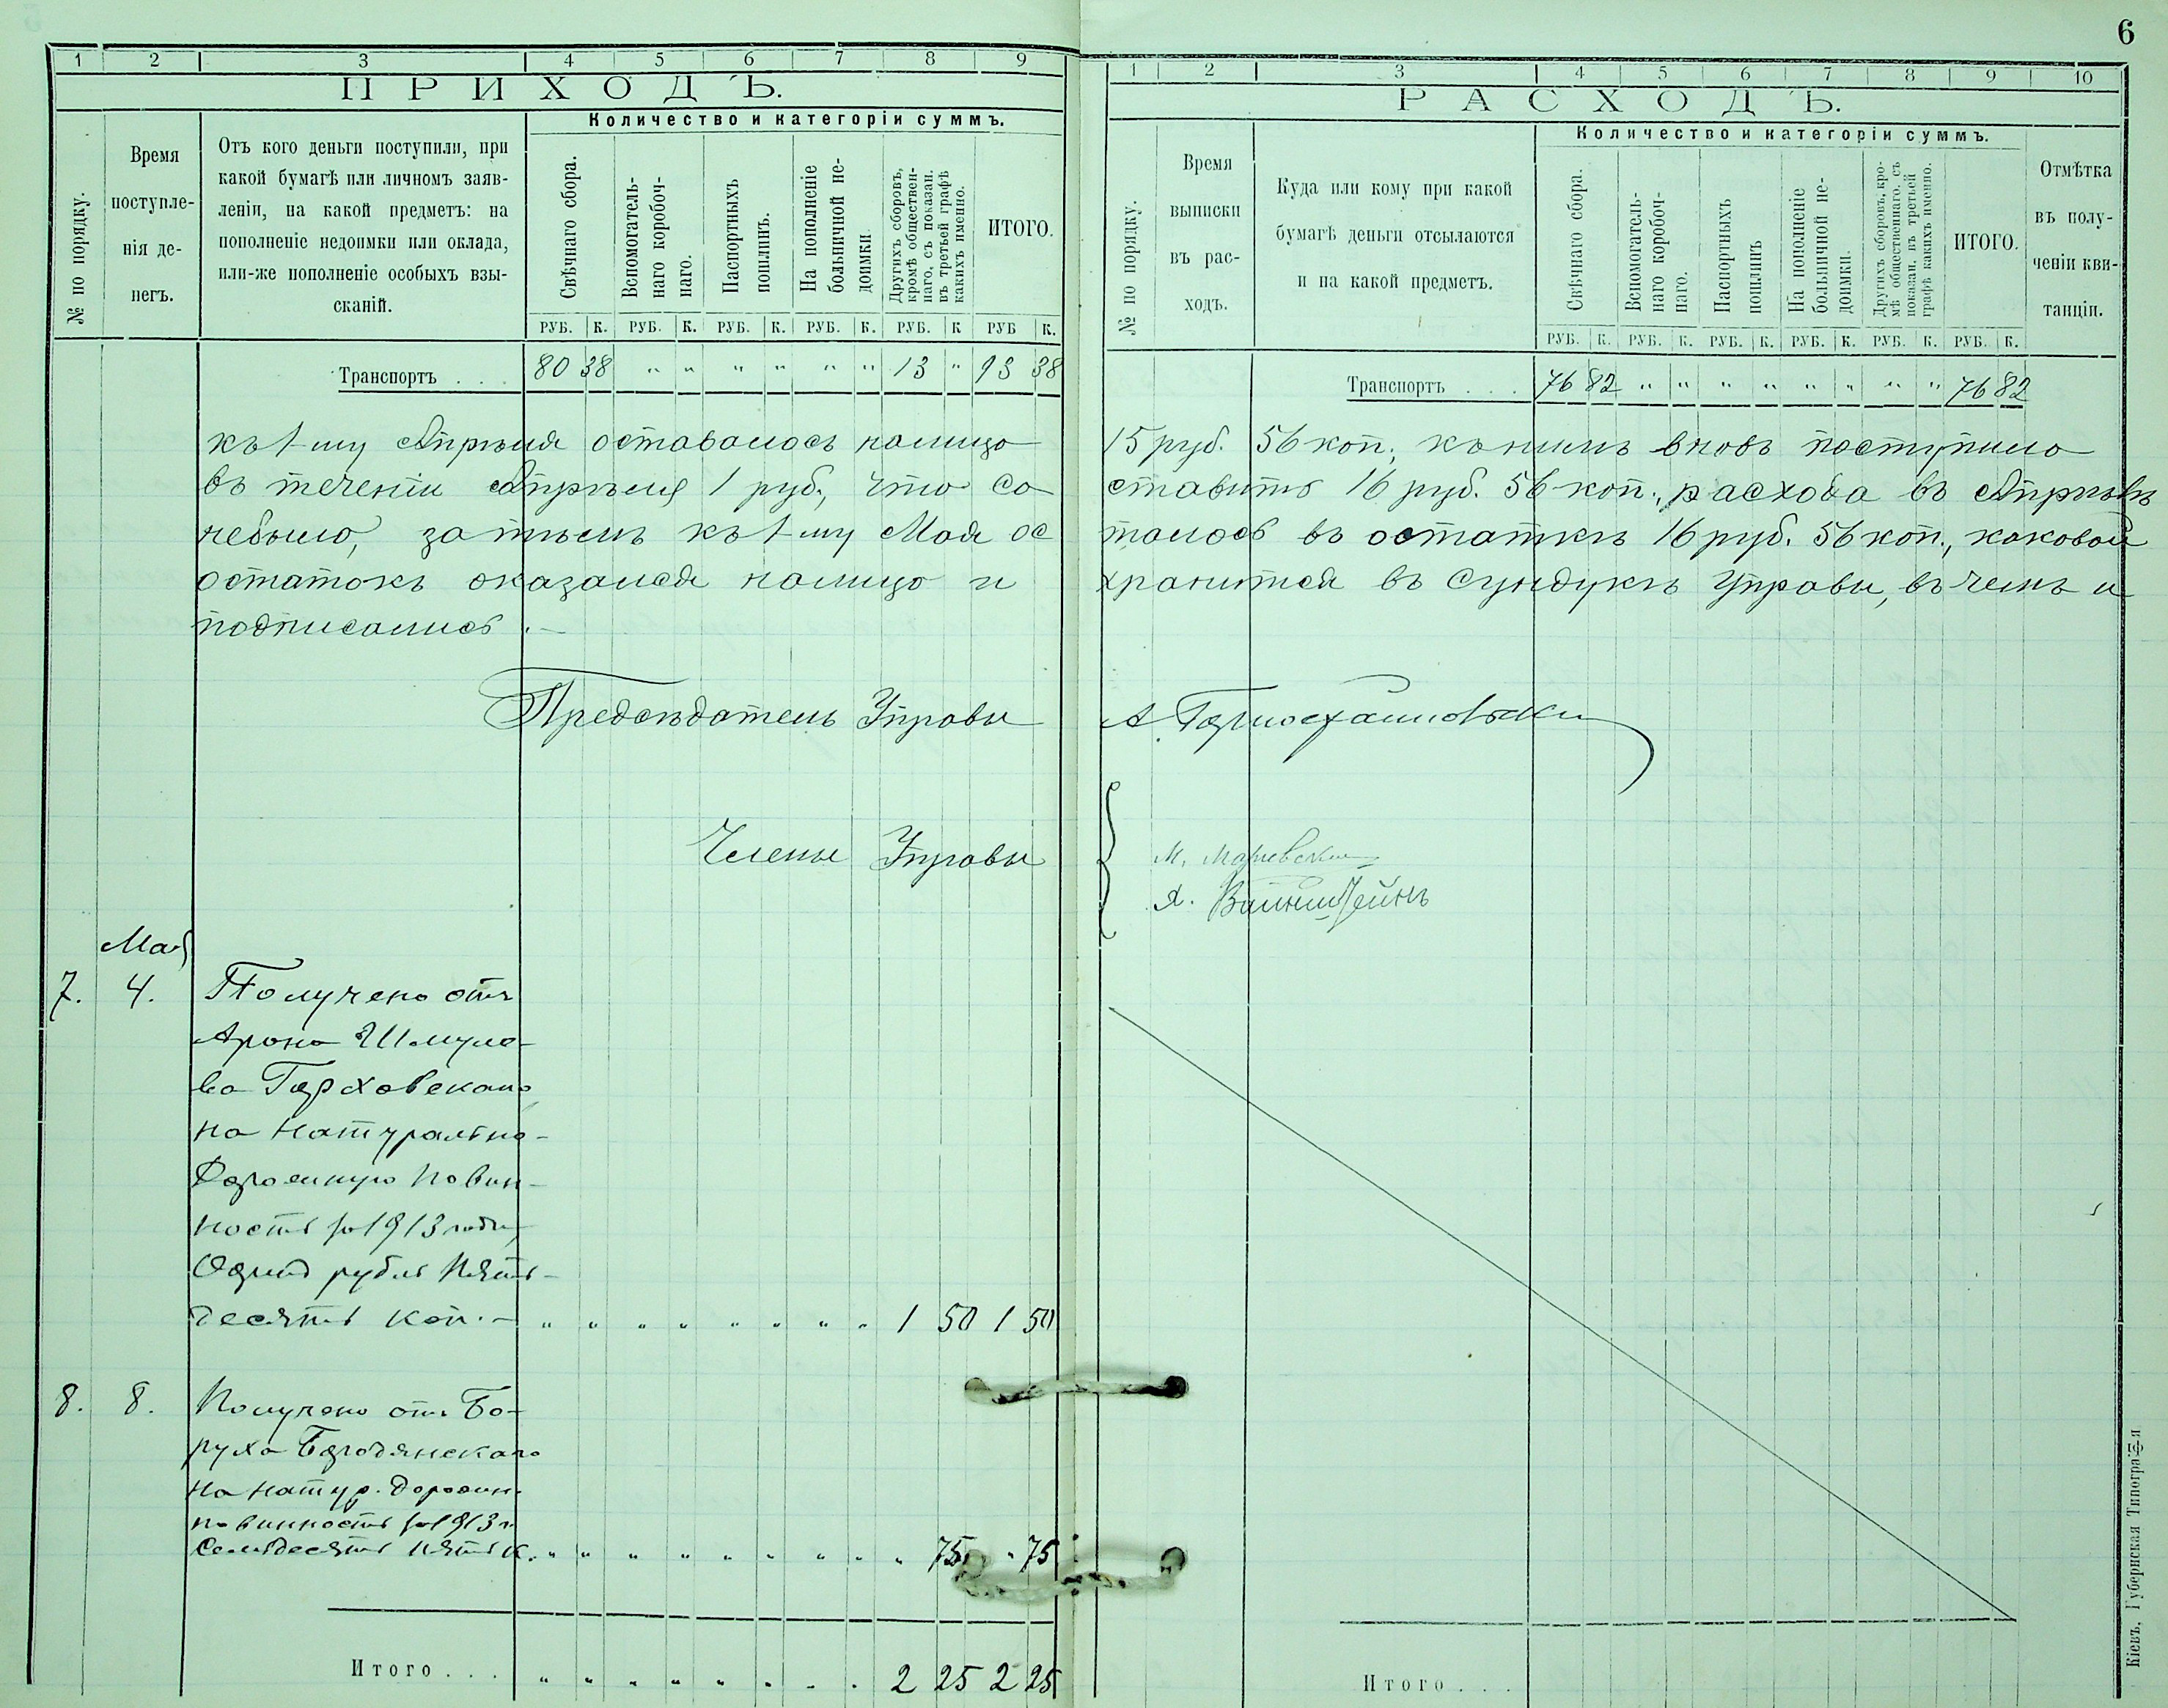 6
1 2 3 4 5 6 7 8 9
ПРИХОДЪ.
№ по порядку.
Время поступле-
нія де-
негъ.
Отъ кого деньги поступили, при
какой бумагѣ или личномъ заяв-
леніи, на какой предметъ: на
пополненіе недоимки или оклада,
или-же пополненіе особыхъ взы-
сканій.
Количество и категоріи суммъ.
Свѣчнаго сбора.
Вспомогатель-
наго коробоч-
наго.
Паспортныхъ
пошлинъ.
На пополненіе
больничной не-
доимки.
Другихъ сборовъ,
кромѣ обществен-
наго, съ показан.
въ третьей графѣ
какихъ именно.
ИТОГО.
РУБ. К. РУБ. К. РУБ. К. РУБ. К. РУБ. К РУБ К.
Транспортъ . . . 80 38 " " " " " " 13 " 93 38
къ 1-му Апрѣля оставалось налицо
въ теченіи Апрѣля 1 руб., что со
небыло, затѣмъ къ 1-му Мая ос
остатокъ оказался налицо и
подписались.—
Предсѣдатель Управы
Члены Управы
Мая
7. 4. Получено отъ
Арона Шмуле-
ва Горховскаго
на натурально-
дорожную повин-
ность за 1913 годъ,
Одинъ рубль пять-
десятъ коп. — " " " " " " " " 1 50 1 50
8. 8. Получено отъ Бо-
руха Бородянскаго
на натур. дорожн.
повинность за 1913 г.
Семьдесятъ пять к. " " " " " " " " " 75 " 75
Итого . . . " " " " " " " " 2 25 2 25
1 2 3 4 5 6 7 8 9 10
РАСХОДЪ.
№ по порядку.
Время
выписки
въ рас-
ходъ.
Куда или кому при какой
бумагѣ деньги отсылаются
и на какой предметъ.
Количество и категоріи суммъ.
Свѣчнаго сбора.
Вспомогатель-
наго коробоч-
наго.
Паспортныхъ
пошлинъ
На пополненіе
больничной не-
доимки.
Другихъ сборовъ, кро-
мѣ общественнаго, съ
показан. въ третьей
графѣ какихъ именно.
ИТОГО.
Отмѣтка
въ полу-
ченіи кви-
танціи.
РУБ. К. РУБ. К. РУБ. К. РУБ. К. РУБ. К. РУБ. К.
Транспортъ . . . 76 82 " " " " " " " " 76 82
15 руб. 56 коп., къ нимъ вновь поступило
ставитъ 16 руб. 56 коп., расхода въ Апрѣлѣ
талось въ остаткѣ 16 руб. 56 коп., каковой
хранится въ сундукѣ Управы, въ чемъ и
А.
М.
Я. Вайнштейнъ
Итого . . .
Кіевъ, Губернская Типографія